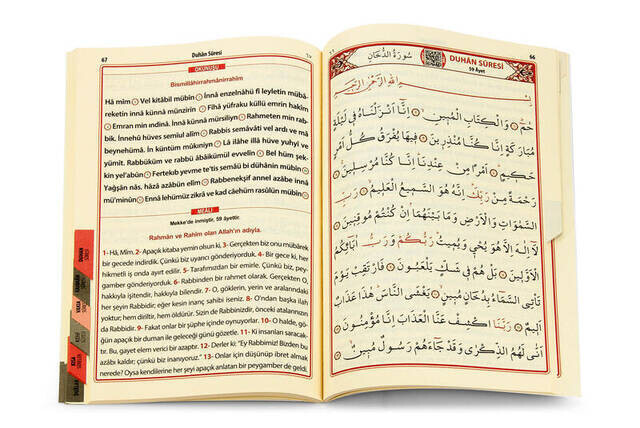 67
Duhân Sûresi
OKUNUŞU
Bismillâhirrahmânirrahîm
Hâ mîm Vel kitâbil mübîn İnnâ enzelnâhü fî leyletin mübâ-
reketin innâ künnâ münzirîn Fîhâ yüfraku küllü emrin hakîm
Emran min ındinâ. İnnâ künnâ mürsilîn Rahmeten min rab-
bik. İnnehû hüves semîul alîm Rabbis semâvâti vel ardı ve mâ
beynehümâ. İn küntüm mûkıniyn Lâ ilâhe illâ hüve yuhyî ve
yümît. Rabbüküm ve rabbü âbâikümül evvelîn Bel hüm şek-
kin yel'abûn Fertekıb yevme te'tis semâü bi dühânin mübîn
Yağşân nâs, hâzâ azâbün elîm Rabbenekşif annel azâbe innâ
mü'minûn Ennâ lehümüz zikrâ ve kad câehüm rasûlün mübîn
MEÂLİ
Mekke'de inmiştir. 59 âyettir.
Rahmân ve Rahîm olan Allah'ın adıyla.
1- Hâ, Mîm. 2- Apaçık kitaba yemin olsun ki, 3- Gerçekten biz onu mübârek
bir gecede indirdik. Çünkü biz uyarıcı gönderiyorduk. 4- Bir gece ki, her
hikmetli iş onda ayırt edilir. 5- Tarafımızdan bir emirle. Çünkü biz, pey-
gamber gönderiyorduk. 6- Rabbinden bir rahmet olarak. Gerçekten O,
hakkıyla işitendir, hakkıyla bilendir. 7- O, göklerin, yerin ve aralarındaki
her şeyin Rabbidir; eğer kesin inanç sahibi iseniz. 8- O'ndan başka ilah
yoktur; hem diriltir, hem öldürür. Sizin de Rabbinizdir, önceki atalarınızın
da Rabbidir. 9- Fakat onlar bir şüphe içinde oynuyorlar. 10- O halde, gö-
ğün apaçık bir duman ile geleceği günü gözetle. 11- Ki insanları saracak-
tır. Bu, gayet elem verici bir azaptır. 12- Derler ki: "Ey Rabbimiz! Bizden bu
azâbı kaldır; çünkü biz inanıyoruz." 13- Onlar için düşünüp ibret almak
nerede? Oysa kendilerine her şeyi apaçık anlatan bir peygamber de geldi.
66
سُورَةُ الدُّخَانِ
DUHÂN SÛRESİ
59 Âyet
بِسْمِ اللهِ الرَّحْمٰنِ الرَّحِيمِ
حٰمٓ وَالْكِتَابِ الْمُبِينِ اِنَّٓا اَنْزَلْنَاهُ فِي لَيْلَةٍ
مُبَارَكَةٍ اِنَّا كُنَّا مُنْذِرِينَ فِيهَا يُفْرَقُ كُلُّ اَمْرٍ
حَكِيمٍ اَمْرًا مِنْ عِنْدِنَا اِنَّا كُنَّا مُرْسِلِينَ
رَحْمَةً مِنْ رَبِّكَ اِنَّهُ هُوَ السَّمِيعُ الْعَلِيمُ رَبِّ
السَّمٰوَاتِ وَالْاَرْضِ وَمَا بَيْنَهُمَا اِنْ كُنْتُمْ مُوقِنِينَ
لَٓا اِلٰهَ اِلَّا هُوَ يُحْيِي وَيُمِيتُ رَبُّكُمْ وَرَبُّ اٰبَٓائِكُمُ
الْاَوَّلِينَ بَلْ هُمْ فِي شَكٍّ يَلْعَبُونَ فَارْتَقِبْ يَوْمَ
تَأْتِي السَّمَٓاءُ بِدُخَانٍ مُبِينٍ يَغْشَى النَّاسَ هٰذَا عَذَابٌ
اَلِيمٌ رَبَّنَا اكْشِفْ عَنَّا الْعَذَابَ اِنَّا مُؤْمِنُونَ
اَنّٰى لَهُمُ الذِّكْرٰى وَقَدْ جَٓاءَهُمْ رَسُولٌ مُبِينٌ